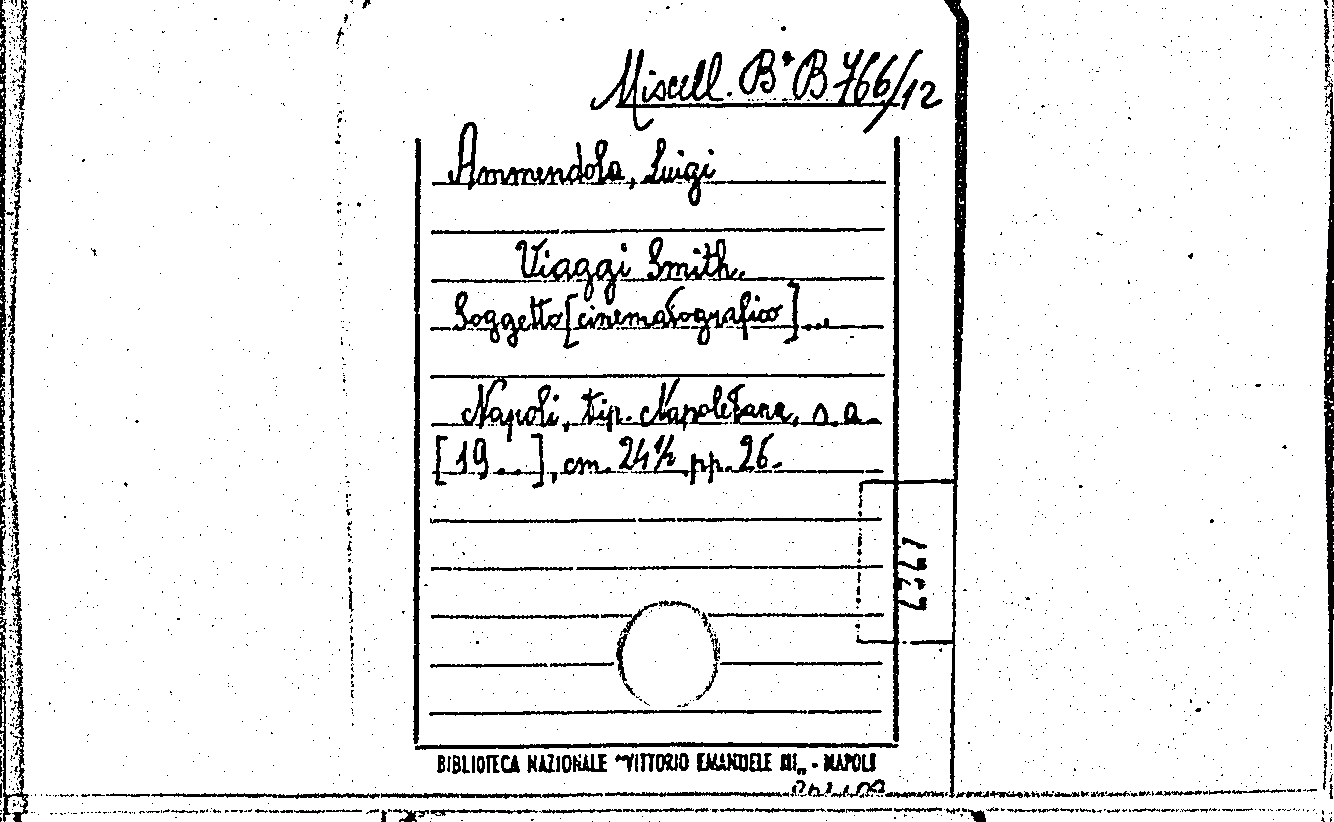 Miscell. Bª B 766/12
Ammendola, Luigi
Viaggi Smith.
Soggetto [cinematografico]...
Napoli, tip. Napoletana, s.a.
[19...], cm. 24½ pp. 26.
BIBLIOTECA NAZIONALE "VITTORIO EMANUELE III„ - NAPOLI